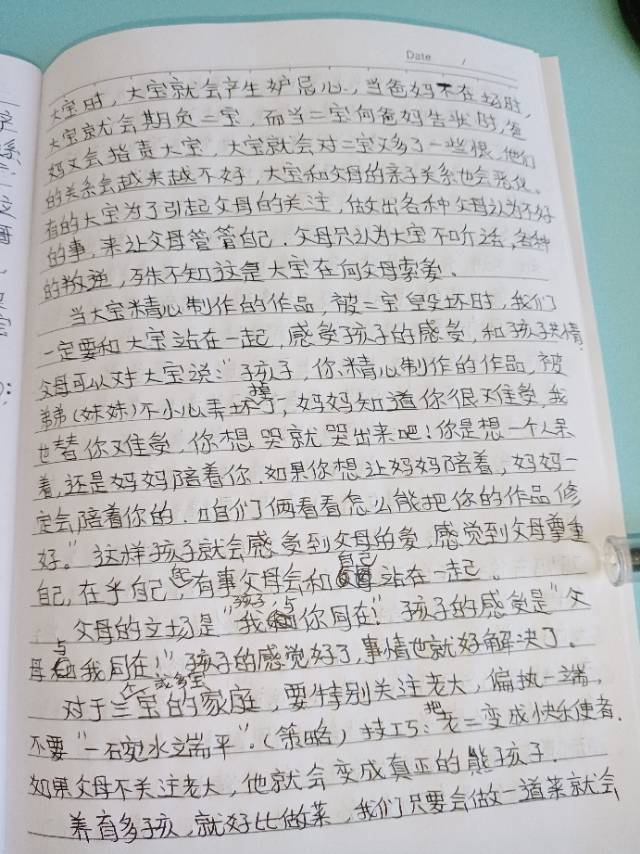 Date /
大宝时，大宝就会产生妒忌心，当爸妈不在场时，
大宝就会期负二宝，而当二宝向爸妈告状时，爸
妈又会指责大宝，大宝就会对二宝又多了一些恨，他们
的关系会越来越不好，大宝和父母的亲子关系也会恶化。
有的大宝为了引起父母的关注，做出各种父母认为不好
的事，来让父母管管自己．父母只认为大宝不听话，各种
的叛逆，殊不知这是大宝在向父母索爱。
当大宝精心制作的作品，被二宝毁坏时，我们
一定要和大宝站在一起，感受孩子的感受，和孩子共情，
父母可以对大宝说："孩子，你精心制作的作品，被
弟弟(妹妹)不小心弄坏掉了，妈妈知道你很难受，我
也替你难受，你想哭就哭出来吧！你是想一个人呆
着，还是妈妈陪着你．如果你想让妈妈陪着，妈妈一
定会陪着你的．咱们俩看看怎么能把你的作品修
好。"这样孩子就会感受到父母的爱，感觉到父母尊重
自己，在乎自己，有事父母会和自己站在一起。
父母的立场是"孩子，我与你同在！"孩子的感受是"父
母与我同在！"孩子的感觉好了，事情也就好解决了。
对于二宝或多宝的家庭，要特别关注老大，偏执一端，
不要"一碗水端平"．(策略)技巧：把老二变成快乐使者．
如果父母不关注老大，他就会变成真正的熊孩子．
养育多孩，就好比做菜，我们只要会做一道菜就会